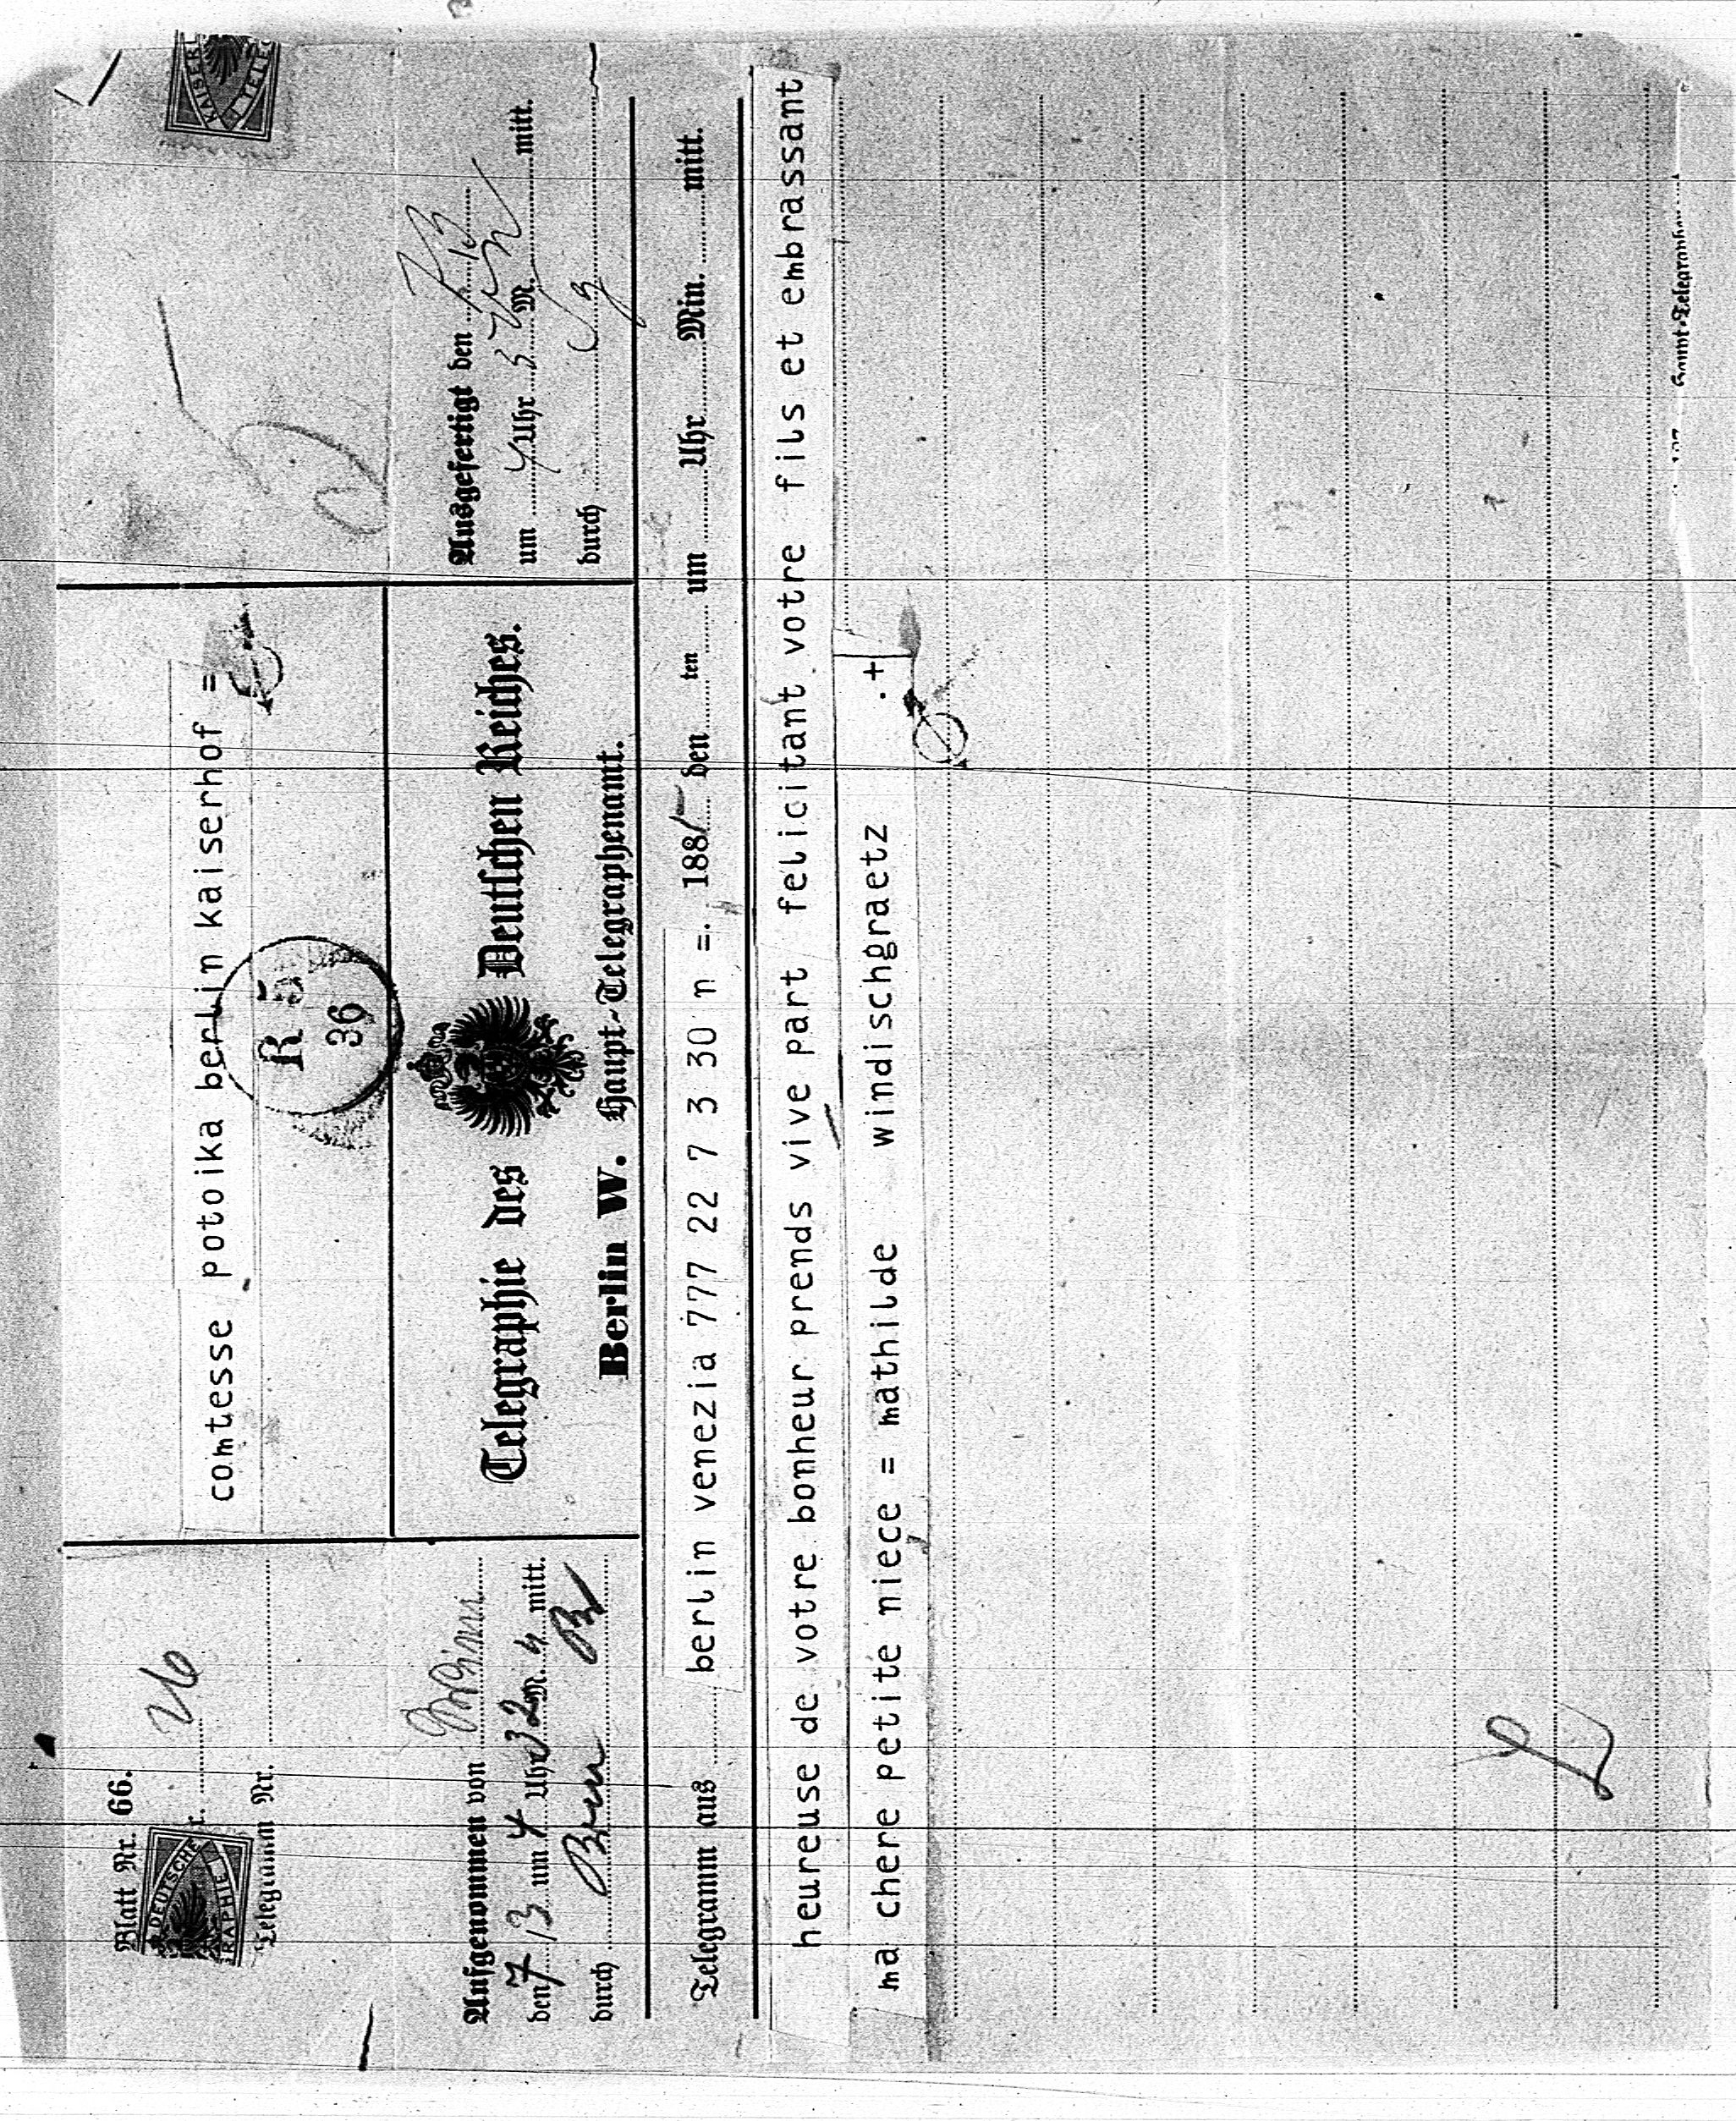 Blatt Nr. 66.
DEUTSCHE
Telegramm Nr.
comtesse potoika berlin kaiserhof =
R 5
36
KAISERL
Aufgenommen von
den 7/3 um 4 Uhr 32 M. mitt.
durch
Telegraphie des Deutschen Reiches.
Berlin W. Haupt-Telegraphenamt.
Ausgefertigt den 7/3
um 4 Uhr M. mitt.
durch
Telegramm aus berlin venezia 777 22 7 3 30 n =. 1885 den ten um Uhr Min. mitt.
heureuse de votre bonheur prends vive part felicitant votre fils et embrassant
ma chere petite niece = mathilde windischgraetz .+